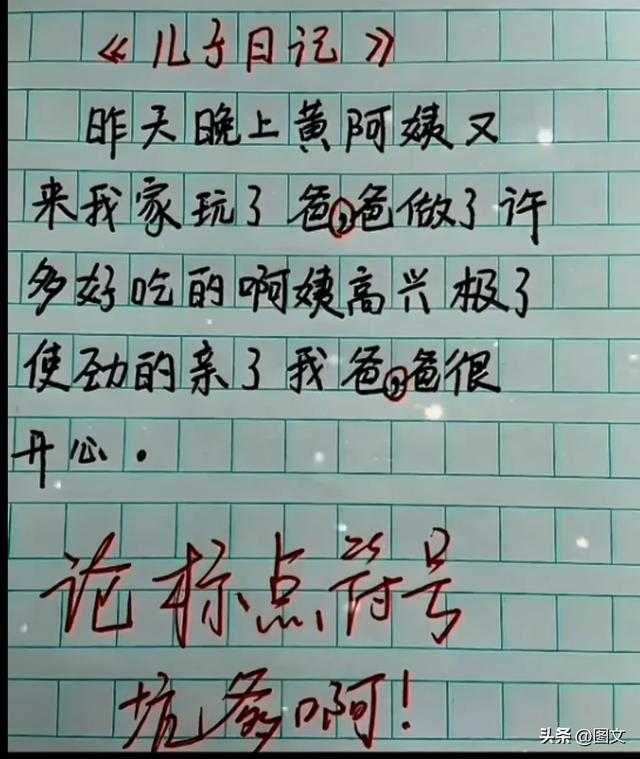 《儿子日记》
昨天晚上黄阿姨又
来我家玩了爸,爸做了许
多好吃的啊姨高兴极了
使劲的亲了我爸,爸很
开心.
论标点符号
坑爹啊!
头条@图文